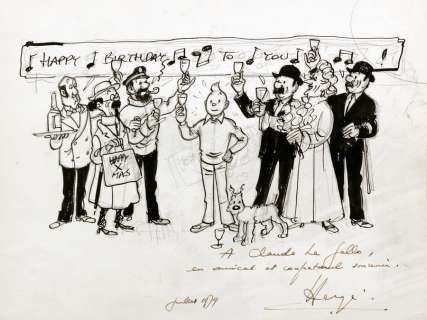 HAPPY BIRTHDAY TO YOU !
HAPPY
X
MAS
A Claude Le Gallo,
en amical et
Hergé.
1979